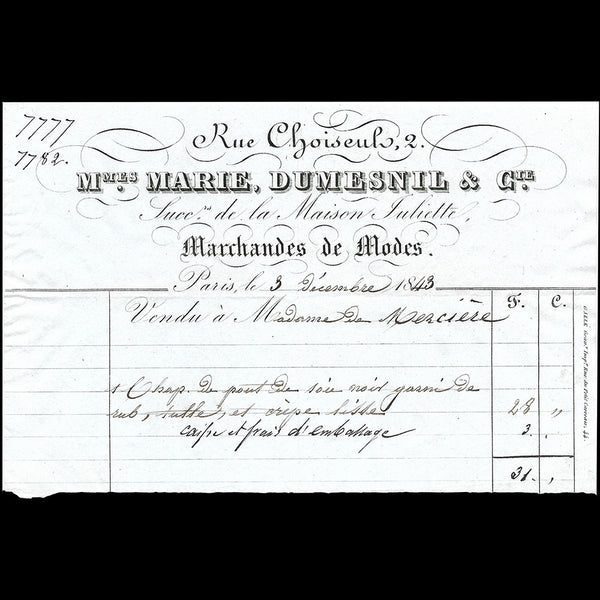 7777
7782.
Rue Choiseul, 2.
Mmes. MARIE, DUMESNIL & Cie.
Succrs. de la Maison Juliette,
Marchandes de Modes.
Paris, le 3 décembre 1843
F. C.
Vendu à Madame de Mercière
1 Chap. de pout de soie noir garni de
rub, tulle, et crêpe lisse 28 "
caisse et frais d'emballage 3. .
31. ,